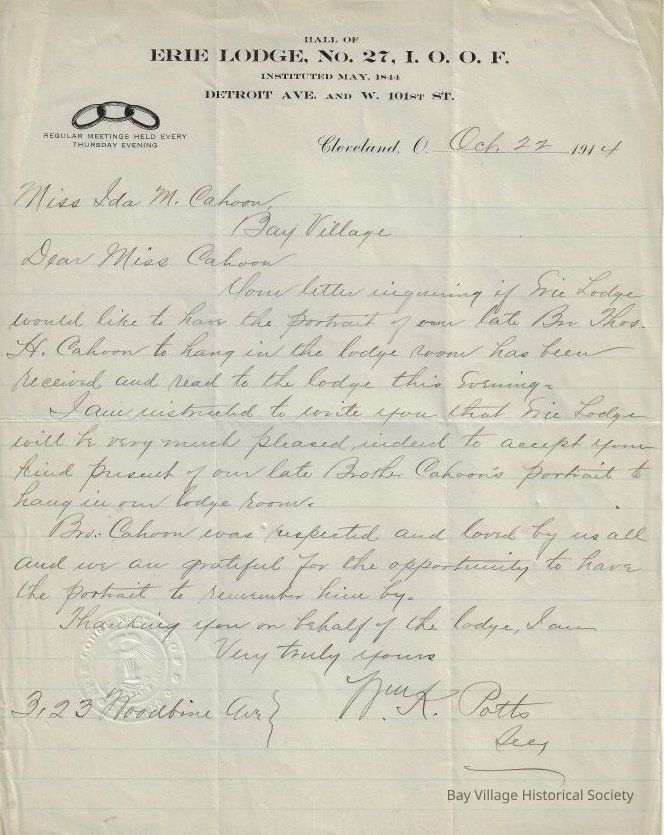 HALL OF
ERIE LODGE, No. 27, I. O. O. F.
INSTITUTED MAY, 1844
DETROIT AVE. AND W. 101ST ST.
REGULAR MEETINGS HELD EVERY
THURSDAY EVENING
Cleveland, O. Oct. 22 1914
Miss Ida M. Cahoon,
Bay Village
Dear Miss Cahoon
Your letter inquiring if Erie Lodge
would like to have the portrait of our late Bro. Thos.
H. Cahoon to hang in the lodge room has been
received and read to the lodge this Evening.
I am instructed to write you that Erie Lodge
will be very much pleased, indeed to accept your
kind present of our late Brother Cahoon's portrait to
hang in our lodge room.
Bro. Cahoon was respected and loved by us all
and we are grateful for the opportunity to have
the portrait to remember him by.
Thanking you on behalf of the lodge, I am
Very truly yours
Wm. K. Potts
Secy
3123 Woodbine Ave
Bay Village Historical Society